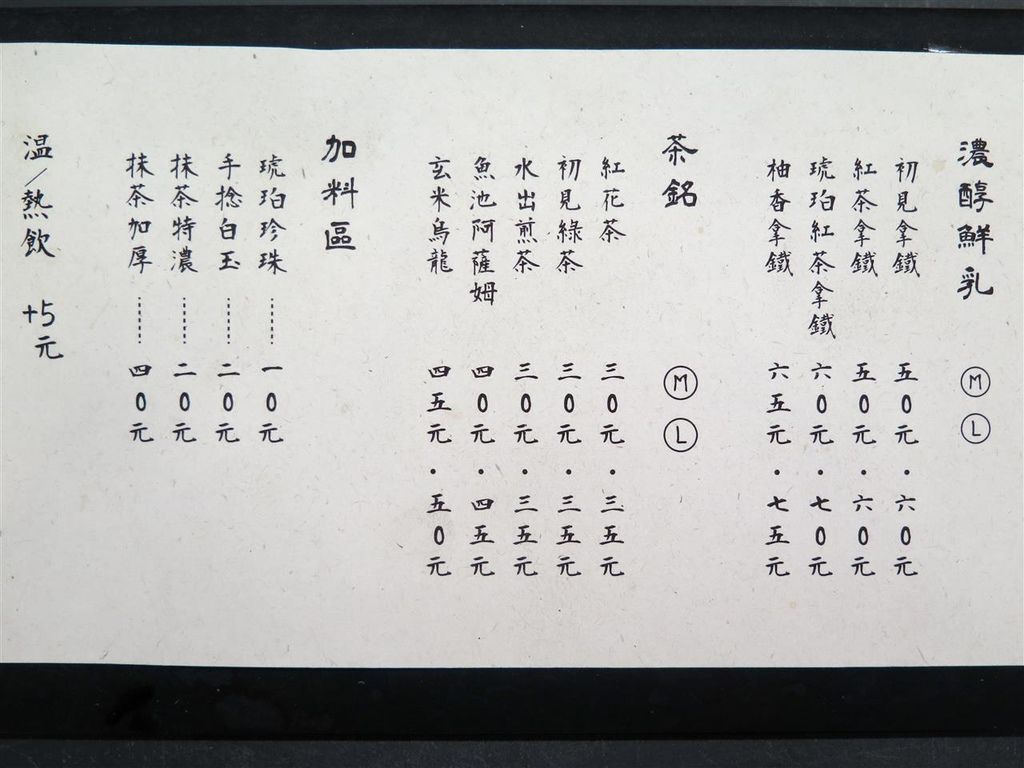 濃醇鮮乳 Ⓜ Ⓛ
初見拿鐵 五0元・六0元
紅茶拿鐵 五0元・六0元
琥珀紅茶拿鐵 六0元・七0元
柚香拿鐵 六五元・七五元
茶銘 Ⓜ Ⓛ
紅花茶 三0元・三五元
初見綠茶 三0元・三五元
水出煎茶 三0元・三五元
魚池阿薩姆 四0元・四五元
玄米烏龍 四五元・五0元
加料區
琥珀珍珠 ⋯⋯ 一0元
手捻白玉 ⋯⋯ 二0元
抹茶特濃 ⋯⋯ 二0元
抹茶加厚 ⋯⋯ 四0元
温／熱飲 +5元